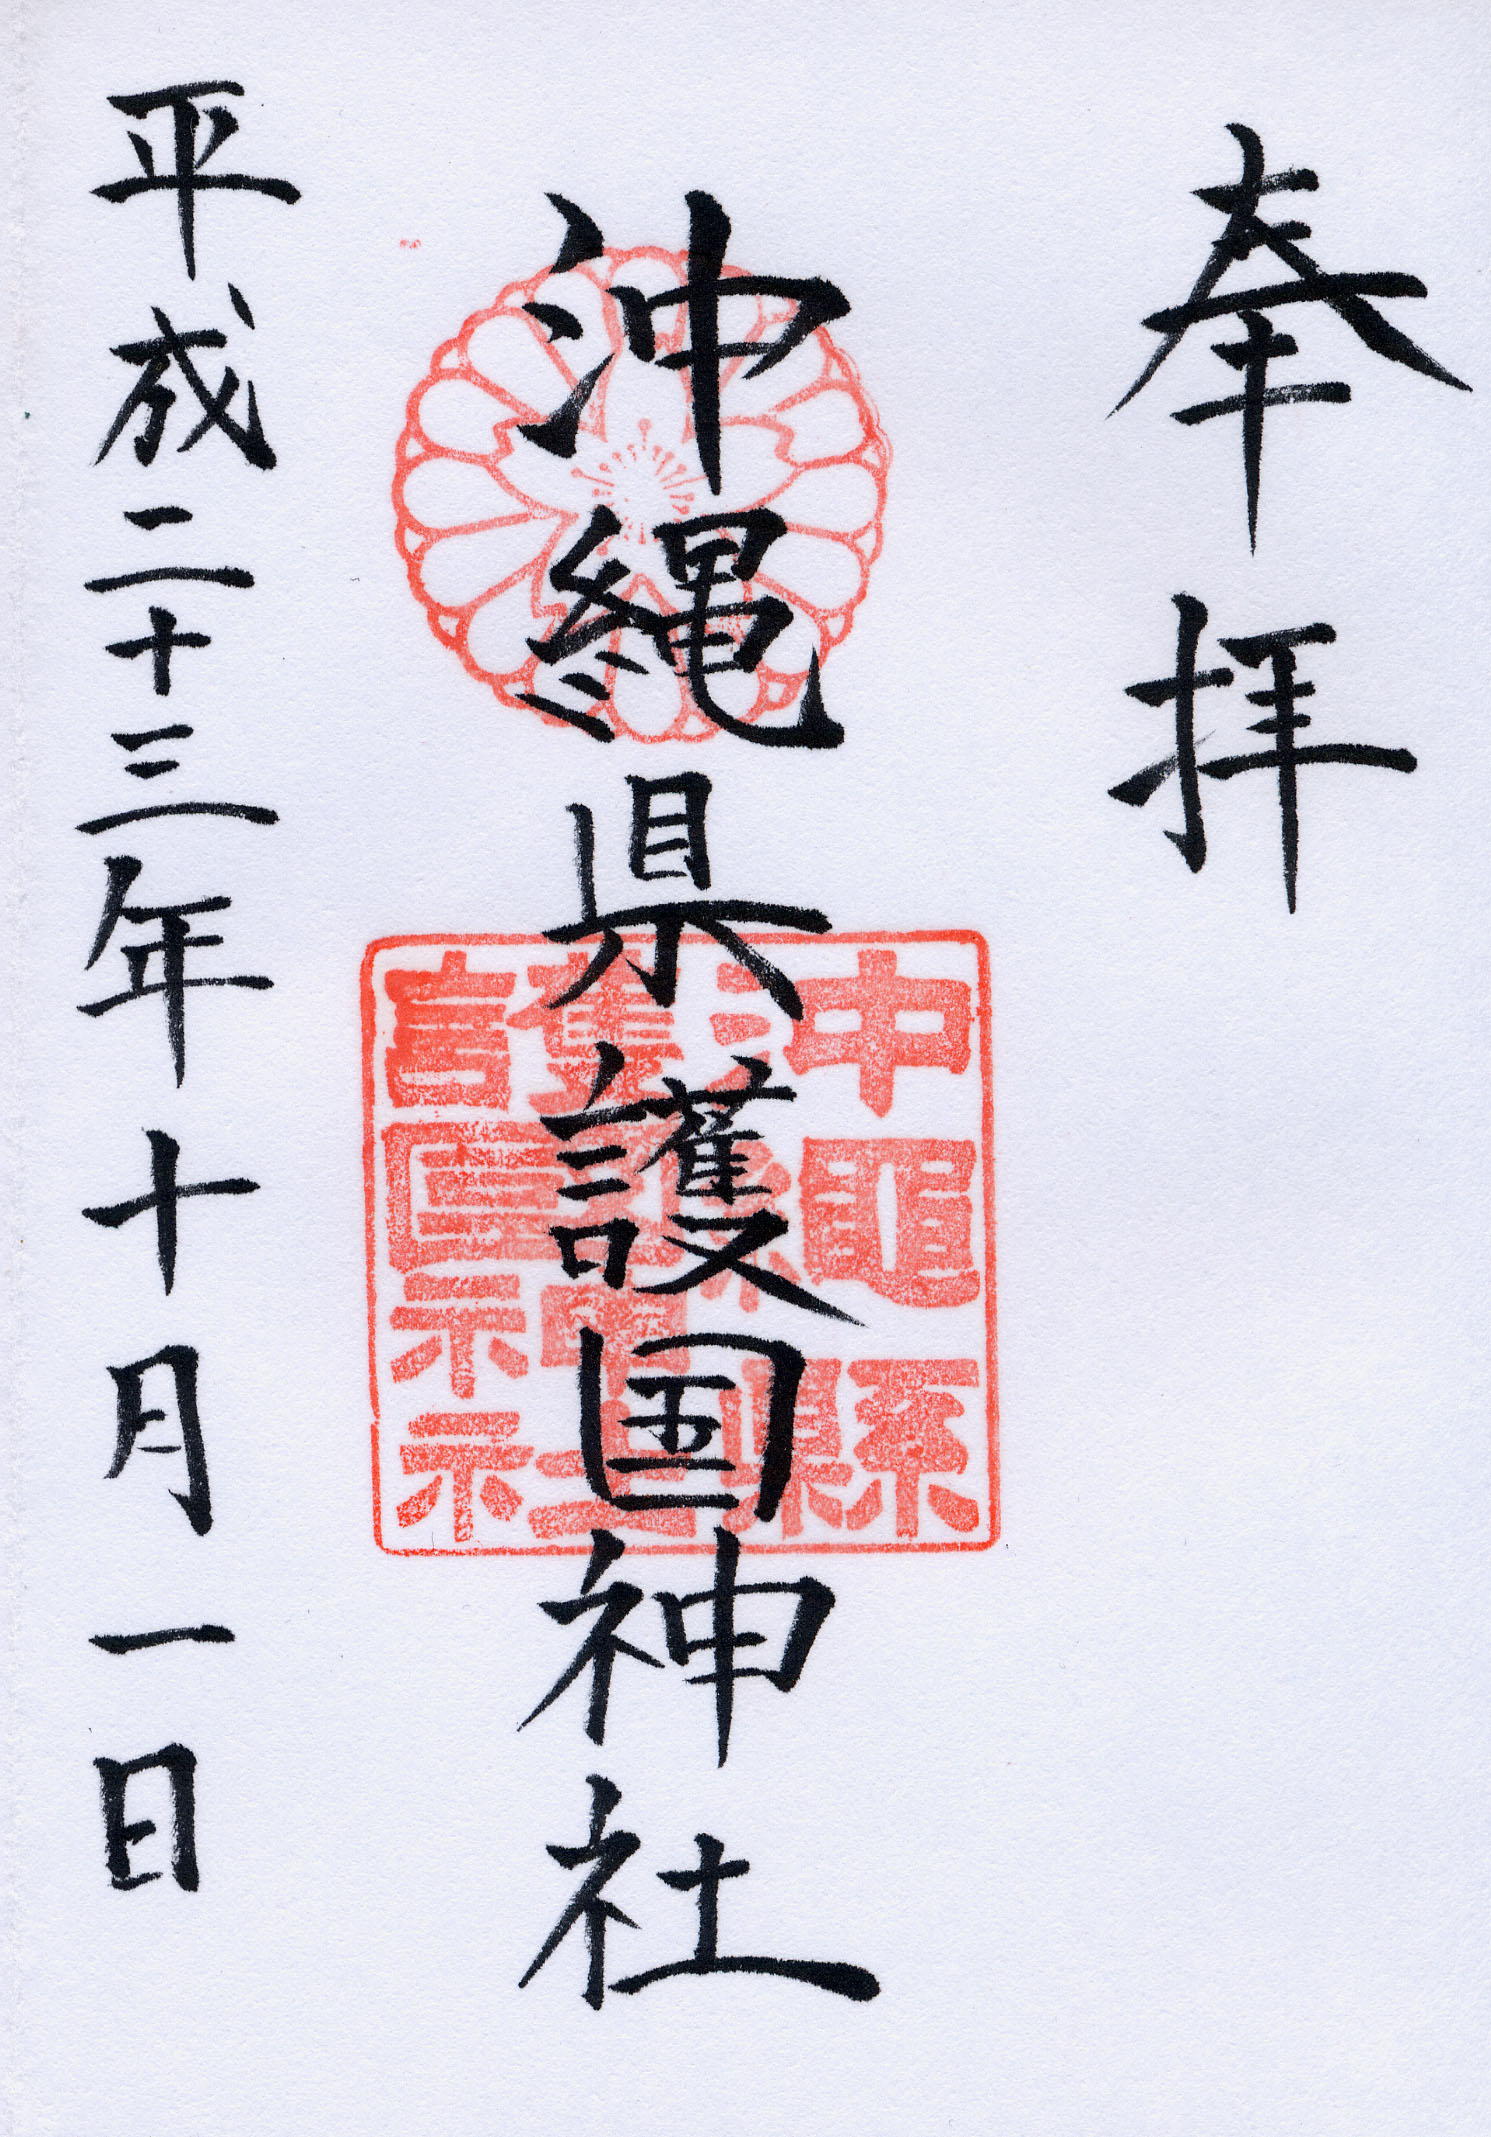 奉拝
沖縄県護国神社
沖縄縣
護國神社
平成二十三年十月一日